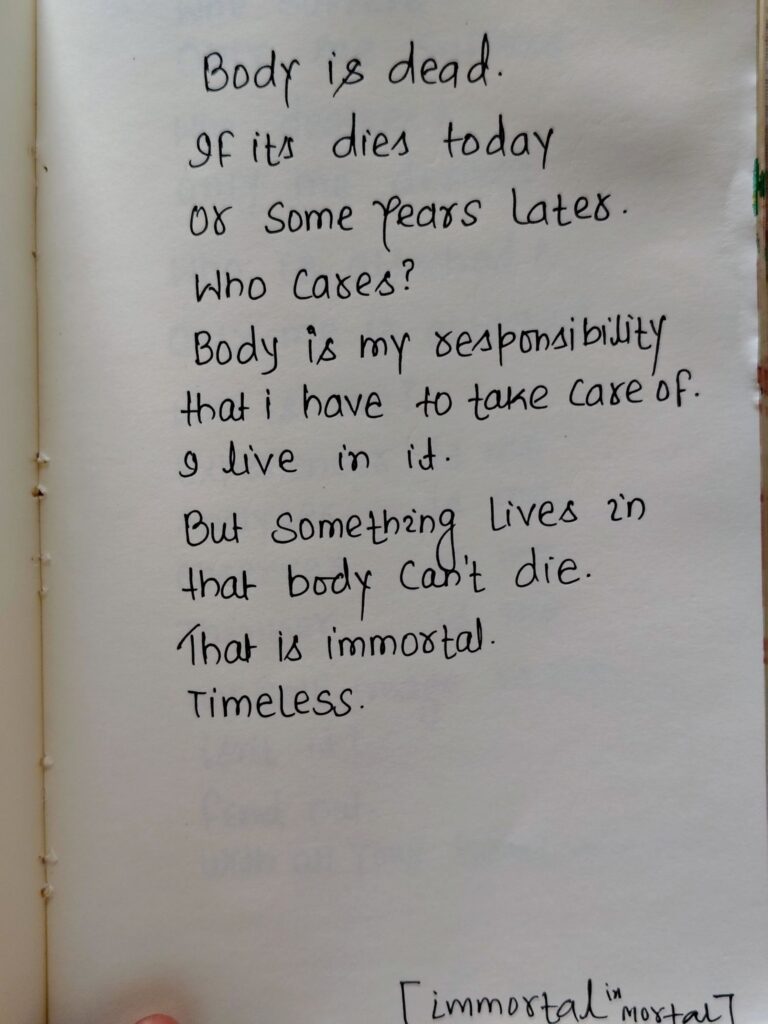 Body is dead.
If its dies today
or some years later.
Who cares?
Body is my responsibility
that i have to take care of.
I live in it.
But something lives in
that body can't die.
That is immortal.
Timeless.
[immortal in mortal]